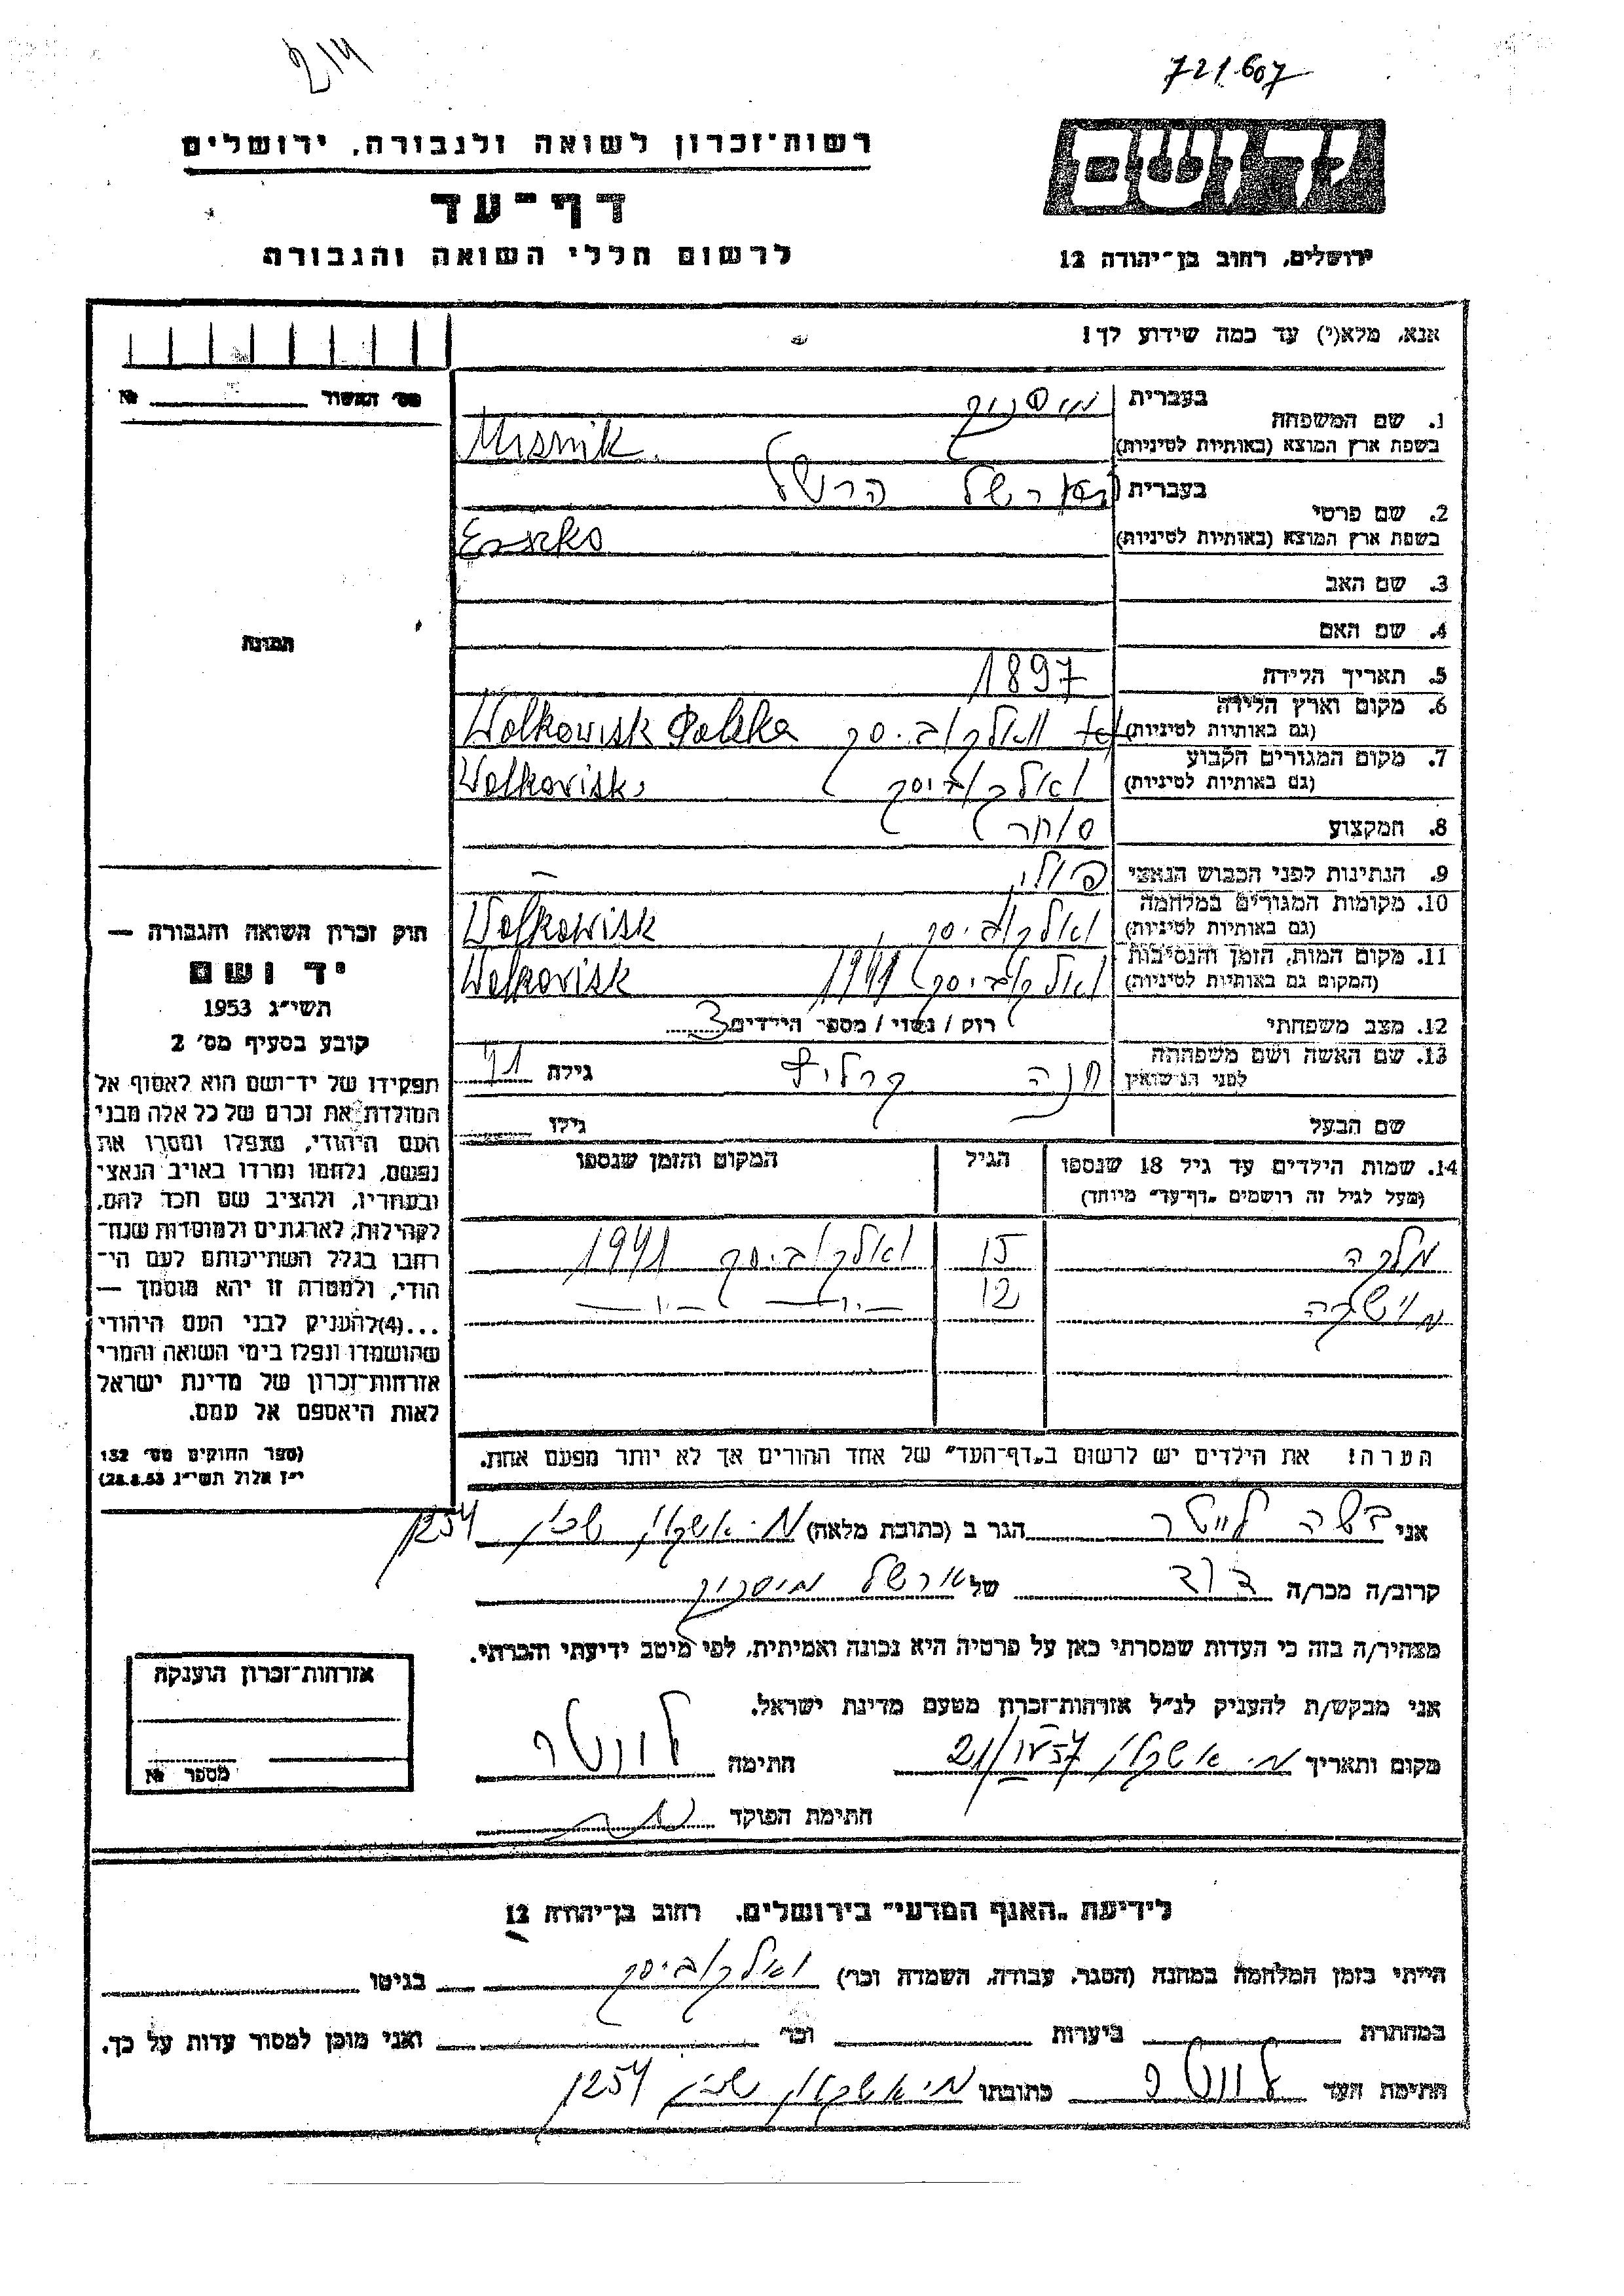 214
721607
רשות־זכרון לשואה ולגבורה, ירושלים
דף־עד
לרשום חללי השואה והגבורה
יד ושם
ירושלים, רחוב בן־יהודה 12
אנא, מלא(י) עד כמה שידוע לך!
מס׳ האשור №
תמונה
1. שם המשפחה
בעברית מיסניק
בשפת ארץ המוצא (באותיות לטיניות) Misnik
2. שם פרטי
בעברית הרשל
בשפת ארץ המוצא (באותיות לטיניות)
3. שם האב
4. שם האם
5. תאריך הלידה 1897
6. מקום וארץ הלידה
(גם באותיות לטיניות) וואלקוביסק Wolkowisk Polska
7. מקום המגורים הקבוע
(גם באותיות לטיניות) ואלקוביסק Wolkovisk
8. המקצוע סוחר
9. הנתינות לפני הכבוש הנאצי פולני
10. מקומות המגורים במלחמה
(גם באותיות לטיניות) ואלקוביסק Wolkowisk
11. מקום המות, הזמן והנסיבות
(המקום גם באותיות לטיניות) ואלקוביסק 1941 Wolkovisk
12. מצב משפחתי רוק / נשוי / מספר הילדים 3
13. שם האשה ושם משפחתה
לפני הנישואין חנה גילה 41
שם הבעל גילו
14. שמות הילדים עד גיל 18 שנספו
(מעל לגיל זה רושמים „דף־עד״ מיוחד)
הגיל
המקום והזמן שנספו
מלכה 15 ואלקוביסק 1941
12 — " — — " —
הערה! את הילדים יש לרשום ב„דף־העד״ של אחד ההורים אך לא יותר מפעם אחת.
חוק זכרון השואה והגבורה —
יד ושם
תשי״ג 1953
קובע בסעיף מס׳ 2
תפקידו של יד־ושם הוא לאסוף אל
המולדת את זכרם של כל אלה מבני
העם היהודי, שנפלו ומסרו את
נפשם, נלחמו ומרדו באויב הנאצי
ובעוזריו, ולהציב שם וזכר להם,
לקהילות, לארגונים ולמוסדות שנח־
רבו בגלל השתייכותם לעם הי־
הודי, ולמטרה זו יהא מוסמך —
...(4)להעניק לבני העם היהודי
שהושמדו ונפלו בימי השואה והמרי
אזרחות־זכרון של מדינת ישראל
לאות היאספם אל עמם.
(ספר החוקים מס׳ 132
י״ז אלול תשי״ג 28.8.53)
אני הגר ב (כתובת מלאה) מ. אשקלון שכון 1254
קרוב/ה מכר/ה דוד של ארשל מיסניק
מצהיר/ה בזה כי העדות שמסרתי כאן על פרטיה היא נכונה ואמיתית, לפי מיטב ידיעתי והכרתי.
אני מבקש/ת להעניק לנ״ל אזרחות־זכרון מטעם מדינת ישראל.
מקום ותאריך מ. אשקלון 21/IV 57 חתימה
חתימת הפוקד
אזרחות־זכרון הוענקה
מספר №
לידיעת „האגף המדעי״ בירושלים, רחוב בן־יהודה 12
הייתי בזמן המלחמה במחנה (הסגר, עבודה, השמדה וכו׳) ואלקוביסק בגיטו
במחתרת ביערות וכו׳ ואני מוכן למסור עדות על כך.
חתימת העד כתובתו מ. אשקלון שכון 1254